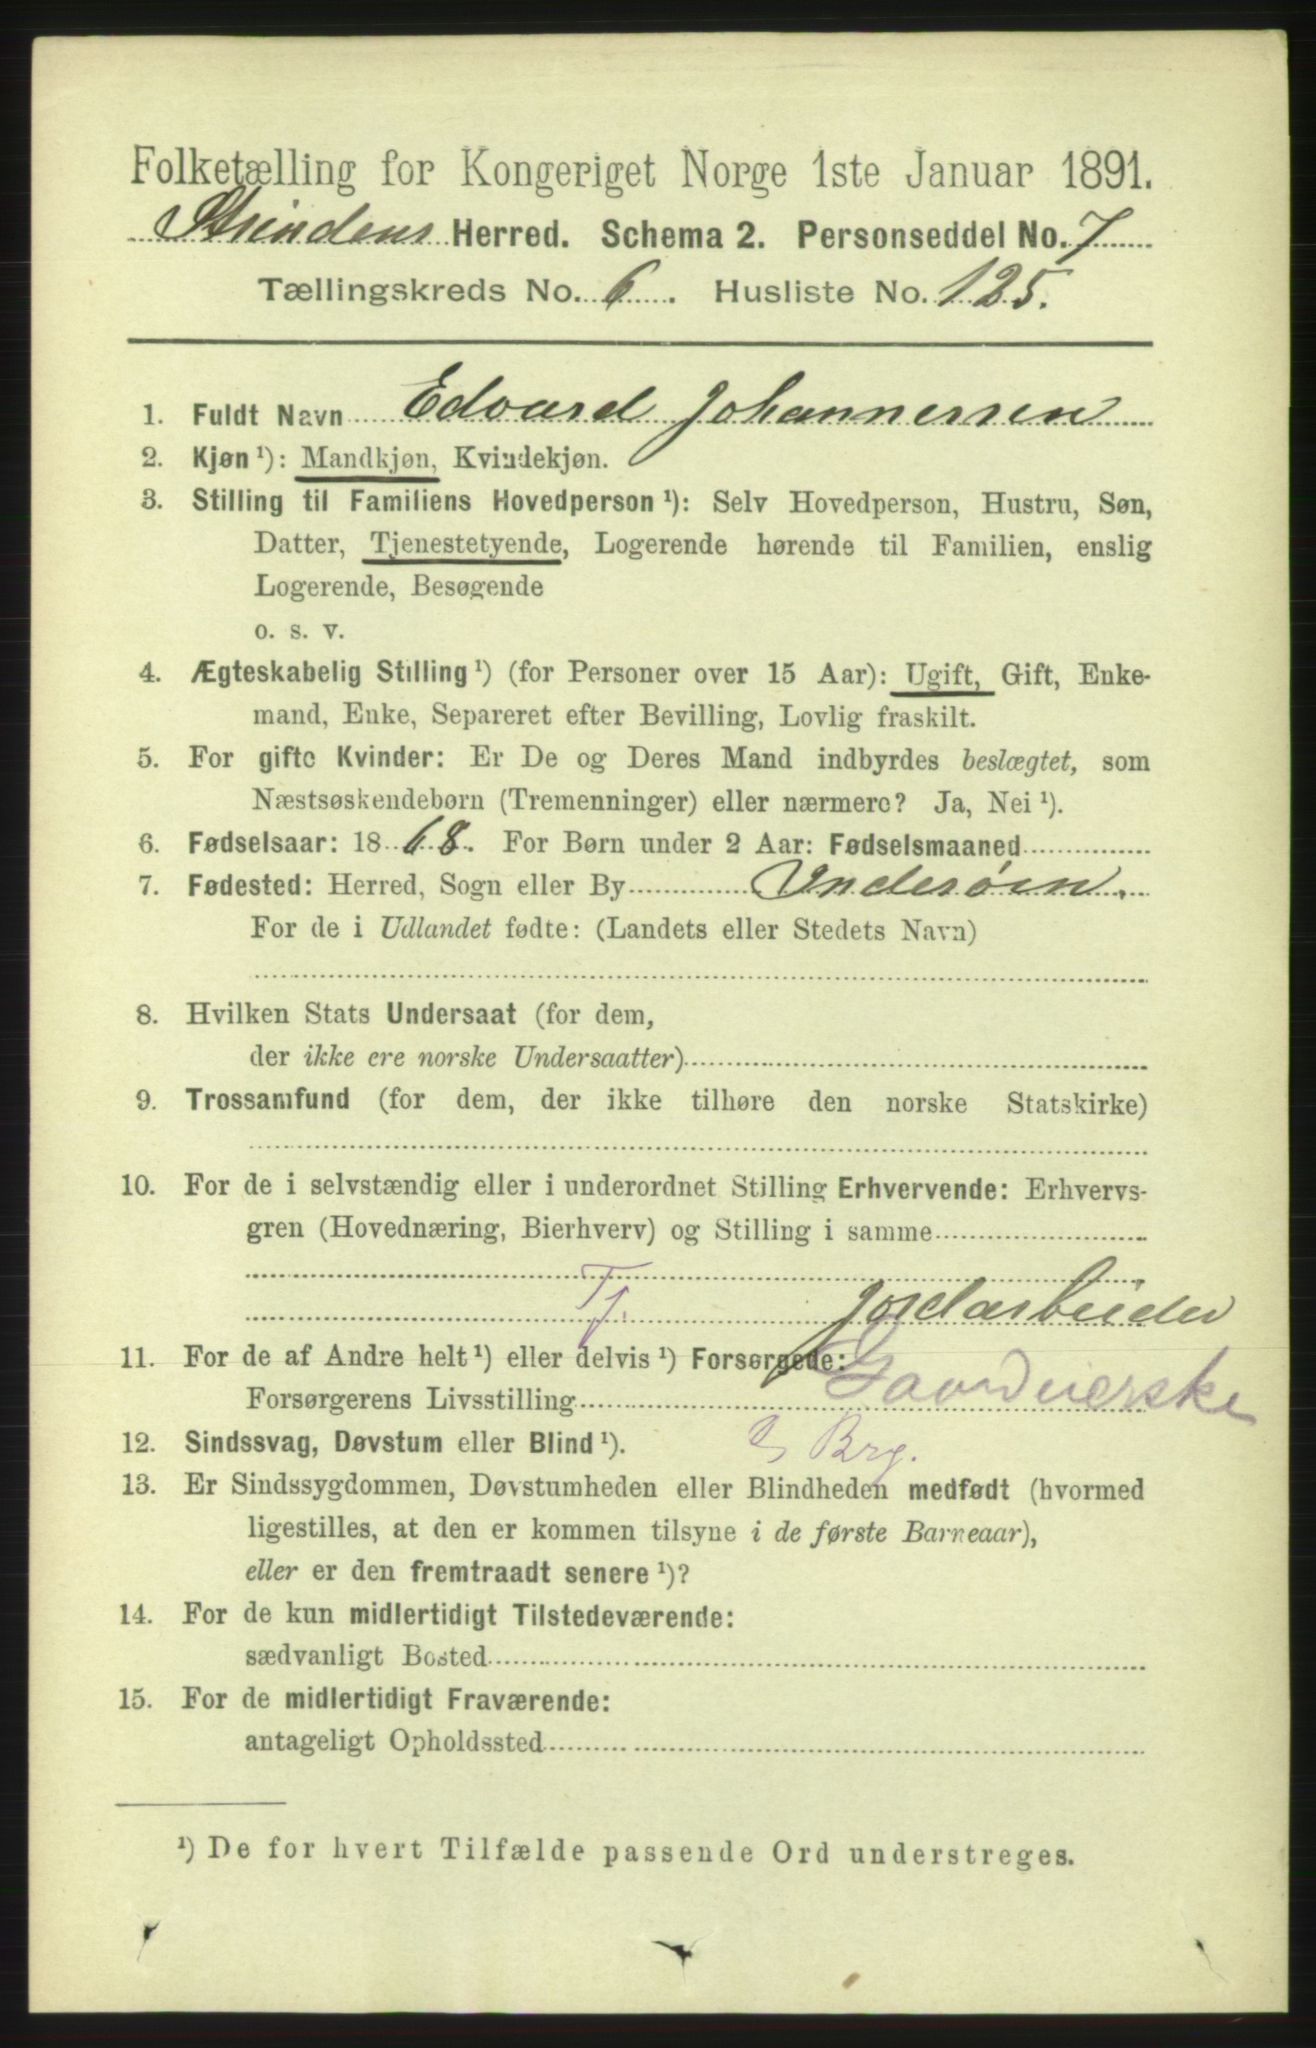 Folketælling for Kongeriget Norge 1ste Januar 1891.
Strindens Herred. Schema 2. Personseddel No. 7
Tællingskreds No. 6. Husliste No. 125.
1. Fuldt Navn Edvard Johannessen
2. Kjøn ¹): Mandkjøn, Kvindekjøn.
3. Stilling til Familiens Hovedperson ¹): Selv Hovedperson, Hustru, Søn,
Datter, Tjenestetyende, Logerende hørende til Familien, enslig
Logerende, Besøgende
o. s. v.
4. Ægteskabelig Stilling ¹) (for Personer over 15 Aar): Ugift, Gift, Enke-
mand, Enke, Separeret efter Bevilling, Lovlig fraskilt.
5. For gifte Kvinder: Er De og Deres Mand indbyrdes beslægtet, som
Næstsøskendebørn (Tremenninger) eller nærmere? Ja, Nei ¹).
6. Fødselsaar: 1868. For Børn under 2 Aar: Fødselsmaaned
7. Fødested: Herred, Sogn eller By Inderøen.
For de i Udlandet fødte: (Landets eller Stedets Navn)
8. Hvilken Stats Undersaat (for dem,
der ikke ere norske Undersaatter)
9. Trossamfund (for dem, der ikke tilhøre den norske Statskirke)
10. For de i selvstændig eller i underordnet Stilling Erhvervende: Erhvervs-
gren (Hovednæring, Bierhverv) og Stilling i samme
Tj. Jordarbeider
11. For de af Andre helt ¹) eller delvis ¹) Forsørgede:
Forsørgerens Livsstilling
12. Sindssvag, Døvstum eller Blind ¹). Brg.
13. Er Sindssygdommen, Døvstumheden eller Blindheden medfødt (hvormed
ligestilles, at den er kommen tilsyne i de første Barneaar),
eller er den fremtraadt senere ¹)?
14. For de kun midlertidigt Tilstedeværende:
sædvanligt Bosted
15. For de midlertidigt Fraværende:
antageligt Opholdssted
¹) De for hvert Tilfælde passende Ord understreges.